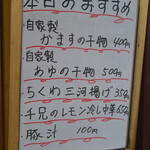 本日のおすすめ
・自家製
かますの干物 400円
・自家製
あゆの干物 500円
・ちくわ三河揚げ 350円
・千兄のレモン冷し中華 650円
・豚汁 100円